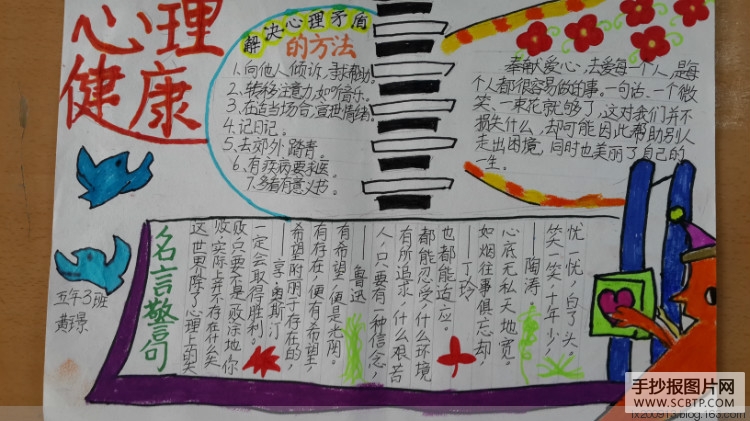 心理
健康
解决心理矛盾
的方法
1.向他人倾诉，寻求帮助。
2、转移注意力，如听音乐。
3、在适当场合，宣泄情绪。
4.记日记。
5、去郊外踏青。
6、有疾病要求医。
7.多看有意义书。
奉献爱心，去爱每个人，是每
个人都很容易做的事。一句话、一个微
笑、一束花就够了，这对我们并不
损失什么，却可能因此帮助别人
走出困境，同时也美丽了自己的
一生。
名言警句
忧一忧，白了头，
笑一笑，十年少，
——陶涛。
心底无私天地宽。
如烟往事俱忘却，
——丁玲
也都能适应。
都能忍受，什么环境
有所追求，什么艰苦
人，只要有一种信念，
——鲁迅
有希望，便是光阴。
有存在，便有希望，
希望附丽于存在的，
——享·奥斯汀
一定会取得胜利。
败点只要不是败涂地你
败.实际上并不存在什么失
这世界除了心理上的失
五年3班
黄璟
手抄报图片网
WWW.SCBTP.COM
fx200913.blog.163.com